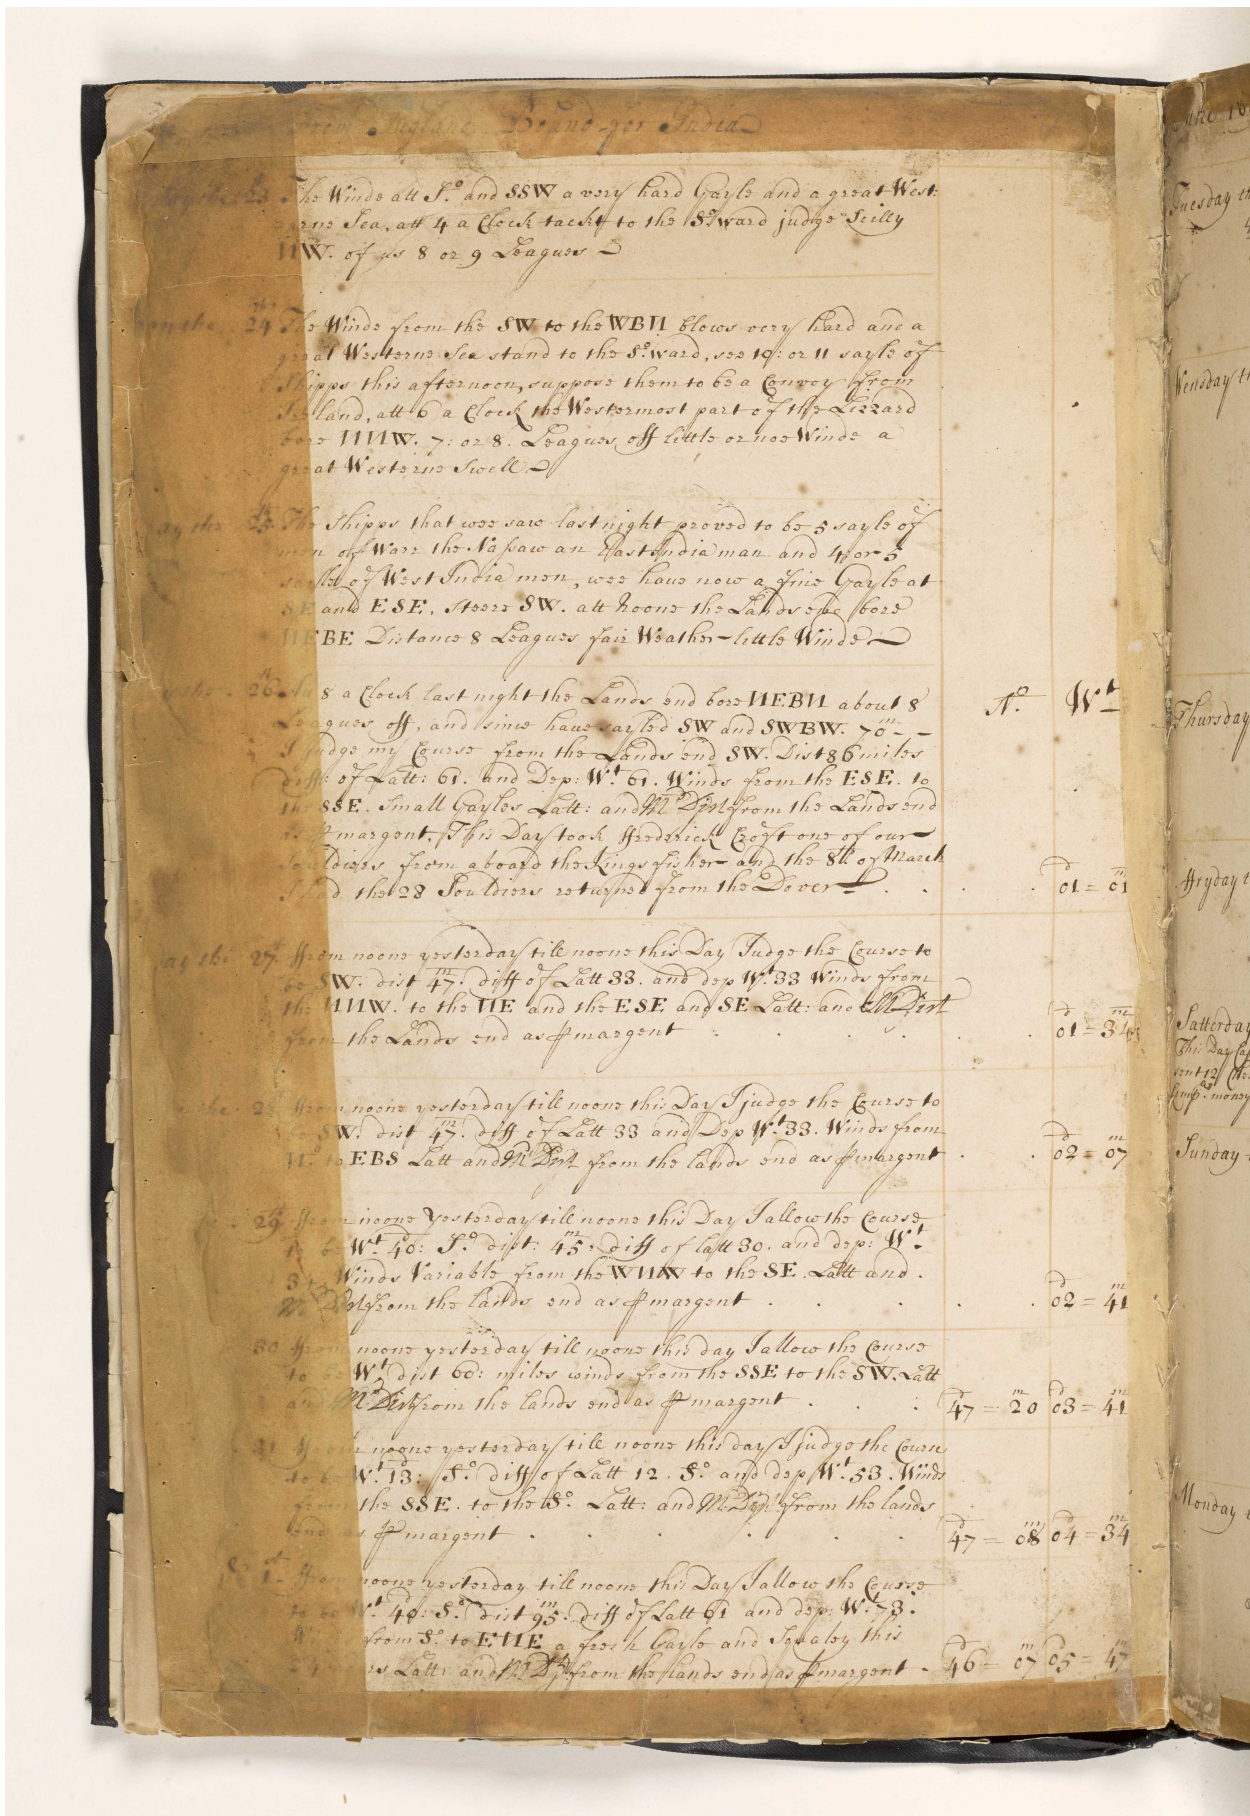 From England Bound for India
23 The Winds att So. and SSW a very hard Gayle and a great West
erne Sea, att 4 a Clock tackt to the So.ward judge Scilly
NW. of us 8 or 9 Leagues
24th The Winds from the SW to the WBN blows very hard and a
great Westerne Sea stand to the So.ward, see 10: or 11 sayle of
Shipps this afternoon, suppose them to be a Convoy from
Ireland, att 6 a Clock the Westermost part of the Lizzard
bore NNW. 7: or 8. Leagues off little or noe Winde a
great Westerne Swell
ay the 25th The Shipps that wee saw last night proved to be 5 sayle of
men of Warr the Nassaw an East India man and 4 or 5
sayle of West India men, wee have now a fine Gayle at
SE and ESE. Steere SW. att Noone the Lands end bore
NEBE Distance 8 Leagues fair Weather little Winde
the 26th Att 8 a Clock last night the Lands end bore NEBN about 8
Leagues off, and since have sayled SW and SWBW. 70m
I judge my Course from the Lands end SW. Dist 86 miles
diff: of Latt: 61. and Dep: Wt. 61. Winds from the ESE. to
the SSE. Small Gayles Latt: and M Dist from the Lands end
as margent. This Day took Frederick Croft one of our
Souldiers from aboard the Kings fisher and the 8th of March
I had the 28 Souldiers returned from the Dover
No. Wt
01d = 01m
ay the 27th From noone yesterday till noone this Day Judge the Course to
be SW. dist 47m. diff of Latt 33. and dep Wt. 33 Winds from
the NNW. to the NE and the ESE and SE Latt: and M Dist
from the Lands end as margent 01d = 34m
the 28 From noone yesterday till noone this Day I judge the Course to
be SW. dist 47m. diff of Latt 33 and Dep Wt. 33. Winds from
No. to EBS Latt and M Dist from the lands end as margent 02d = 07m
29th From noone Yesterday till noone this Day I allow the Course
to be Wt. 40d: So. dist: 45m: diff of latt 30. and dep: Wt.
Winds Variable from the WNW to the SE. Latt and
M Dist from the lands end as margent 02d = 41m
30 From noone yesterday till noone this day I allow the Course
to be Wt. dist 60: miles winds from the SSE to the SW. Latt
and M Dist from the lands end as margent 47d = 20m 03d = 41m
31 From noone yesterday till noone this day I judge the Course
to be Wt. 13d: So. diff of Latt 12. So. and dep Wt. 53. Winds
from the SSE. to the So. Latt: and M Dist from the lands
end as margent 47d = 08m 04d = 34m
1st From noone yesterday till noone this Day I allow the Course
to be Wt. 40d: So. dist 95m. diff of Latt 61 and dep: Wt. 73.
from So. to ENE a fresh Gayle and Squaley this
Latt: and M Dist from the lands end as margent 46d = 07m 05d = 47m
June
Tuesday
Wensday
Thursday
Fryday
Satterday
This Day
sent 12
money
Sunday
Monday